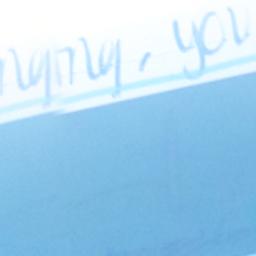 nging, you